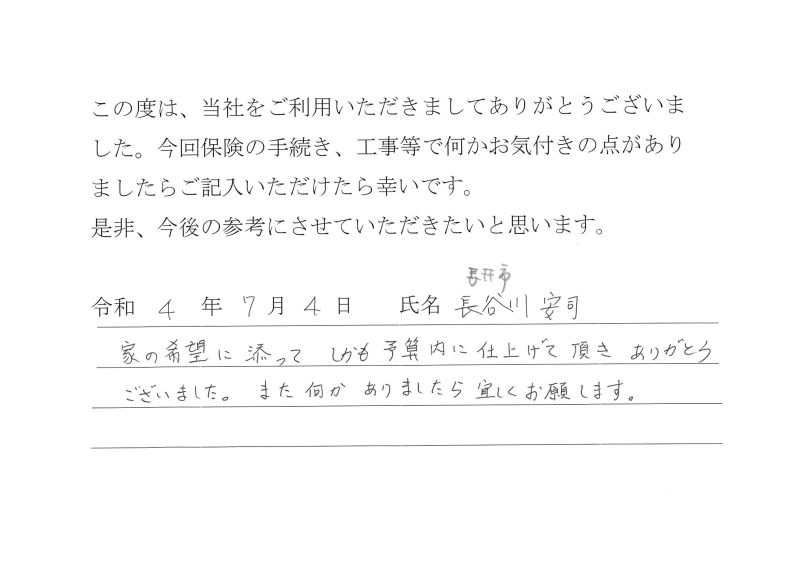 この度は、当社をご利用いただきましてありがとうございま
した。今回保険の手続き、工事等で何かお気付きの点があり
ましたらご記入いただけたら幸いです。
是非、今後の参考にさせていただきたいと思います。
長井市
令和 4 年 7 月 4 日 氏名 長谷川 安司
家の希望に添って しかも予算内に仕上げて頂き ありがとう
ございました。 また何か ありましたら 宜しくお願します。